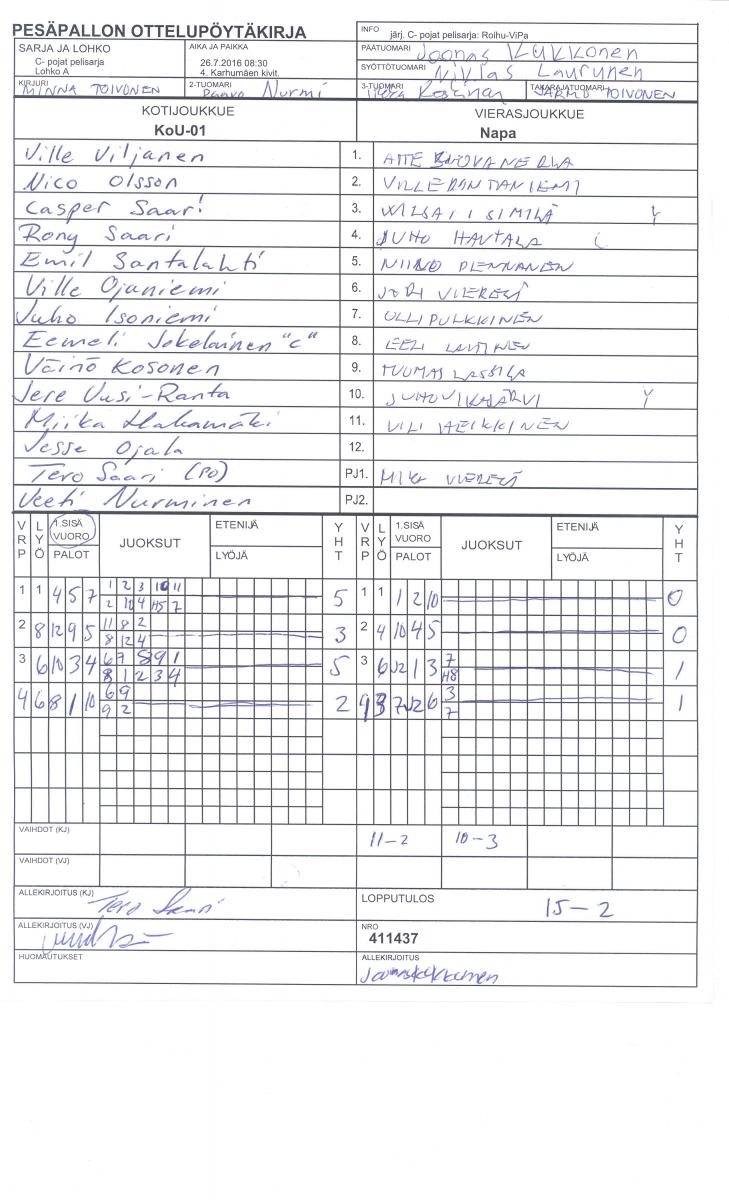 PESÄPALLON OTTELUPÖYTÄKIRJA
INFO järj. C- pojat pelisarja: Roihu-ViPa
SARJA JA LOHKO
C- pojat pelisarja
Lohko A
AIKA JA PAIKKA
26.7.2016 08:30
4. Karhumäen kivit.
PÄÄTUOMARI Joonas Kukkonen
SYÖTTÖTUOMARI Niklas Laurunen
KIRJURI MINNA TOIVONEN
2-TUOMARI Paavo Nurmi
3-TUOMARI
TAKARAJATUOMARI JARMO TOIVONEN
KOTIJOUKKUE
KoU-01
VIERASJOUKKUE
Napa
Ville Viljanen 1.
Nico Olsson 2. VILLE RONTANIEMI
Casper Saari 3. Y
Rony Saari 4. JUHO HAUTALA C
Emil Santalahti 5. NIILO PENNANEN
Ville Ojaniemi 6. JORI VIERESJ
Juho Isoniemi 7. OLLI PULKKINEN
Eemeli Jokelainen "C" 8. EELI LAUTINEN
Väinö Kosonen 9. TUOMAS LASSILA
Jere Uusi-Ranta 10. JUHO VIKAJÄRVI Y
Miika Hakamäki 11. VILI HEIKKINEN
Jesse Ojala 12.
Tero Saari (PO) PJ1. MIKA
Veeti Nurminen PJ2.
VRP LYÖ 1.SISÄ VUORO PALOT JUOKSUT ETENIJÄ LYÖJÄ YHT VRP LYÖ 1.SISÄ VUORO PALOT JUOKSUT ETENIJÄ LYÖJÄ YHT
1 1 4 5 7 1 2 3 10 11 5 1 1 1 2 10 0
2 10 4 H5 7
2 8 12 9 5 11 8 2 3 2 4 10 4 5 0
8 12 4
3 6 10 3 4 6 7 8 9 1 5 3 6 V2 1 3 7 1
8 1 2 3 4 H8
4 6 8 1 10 6 9 2 4 3 7 V2 6 3 1
9 2 7
VAIHDOT (KJ) 11-2 10-3
VAIHDOT (VJ)
ALLEKIRJOITUS (KJ) Tero Saari
LOPPUTULOS 15-2
ALLEKIRJOITUS (VJ)
NRO
411437
HUOMAUTUKSET
ALLEKIRJOITUS Joonas Kukkonen